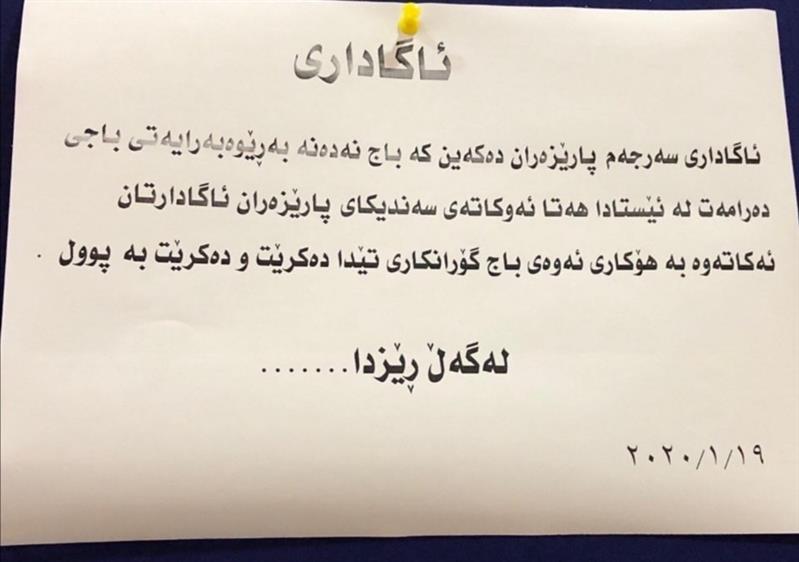 ئاگاداری
ئاگاداری سەرجەم پارێزەران دەکەین کە باج نەدەنە بەڕێوەبەرایەتی باجی
دەرامەت لە ئێستادا هەتا ئەوکاتەی سەندیکای پارێزەران ئاگادارتان
ئەکاتەوە بە هۆکاری ئەوەی باج گۆرانکاری تێدا دەکرێت و دەکرێت بە پوول .
لەگەڵ ڕێزدا.......
٢٠٢٠/١/١٩